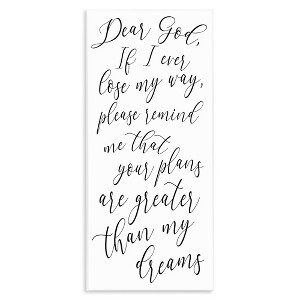 Dear God,
If I ever
lose my way,
please remind
me that
your plans
are greater
than my
dreams